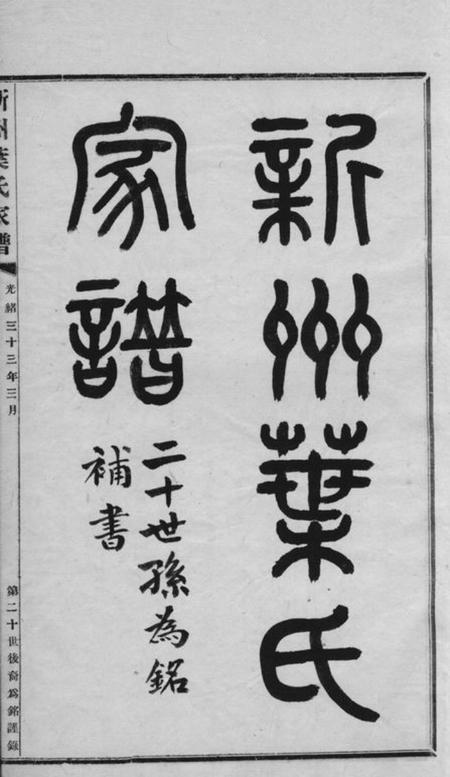 新州葉氏
家譜
二十世孫為銘
補書
新州葉氏家譜
光緒三十三年三月
第二十世後裔為銘謹錄